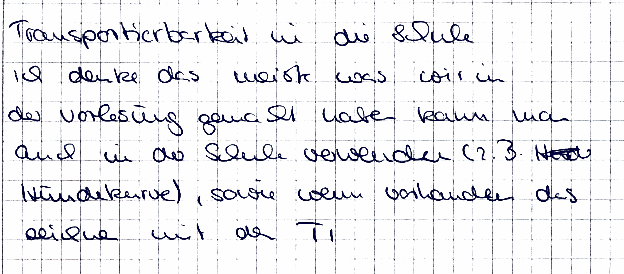 Transportierbarkeit in die Schule
ich denke das meiste was wir in
der Vorlesung gemacht haben kann man
auch in der Schule verwenden (z.B.
Hundekurve), sowie wenn vorhanden das
zeichne mit den TI